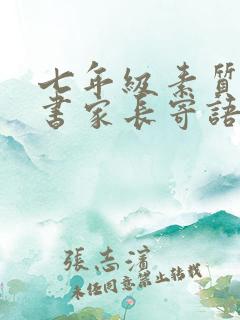 七年級素質
書家長寄語
張志濱
未经同意禁止转载